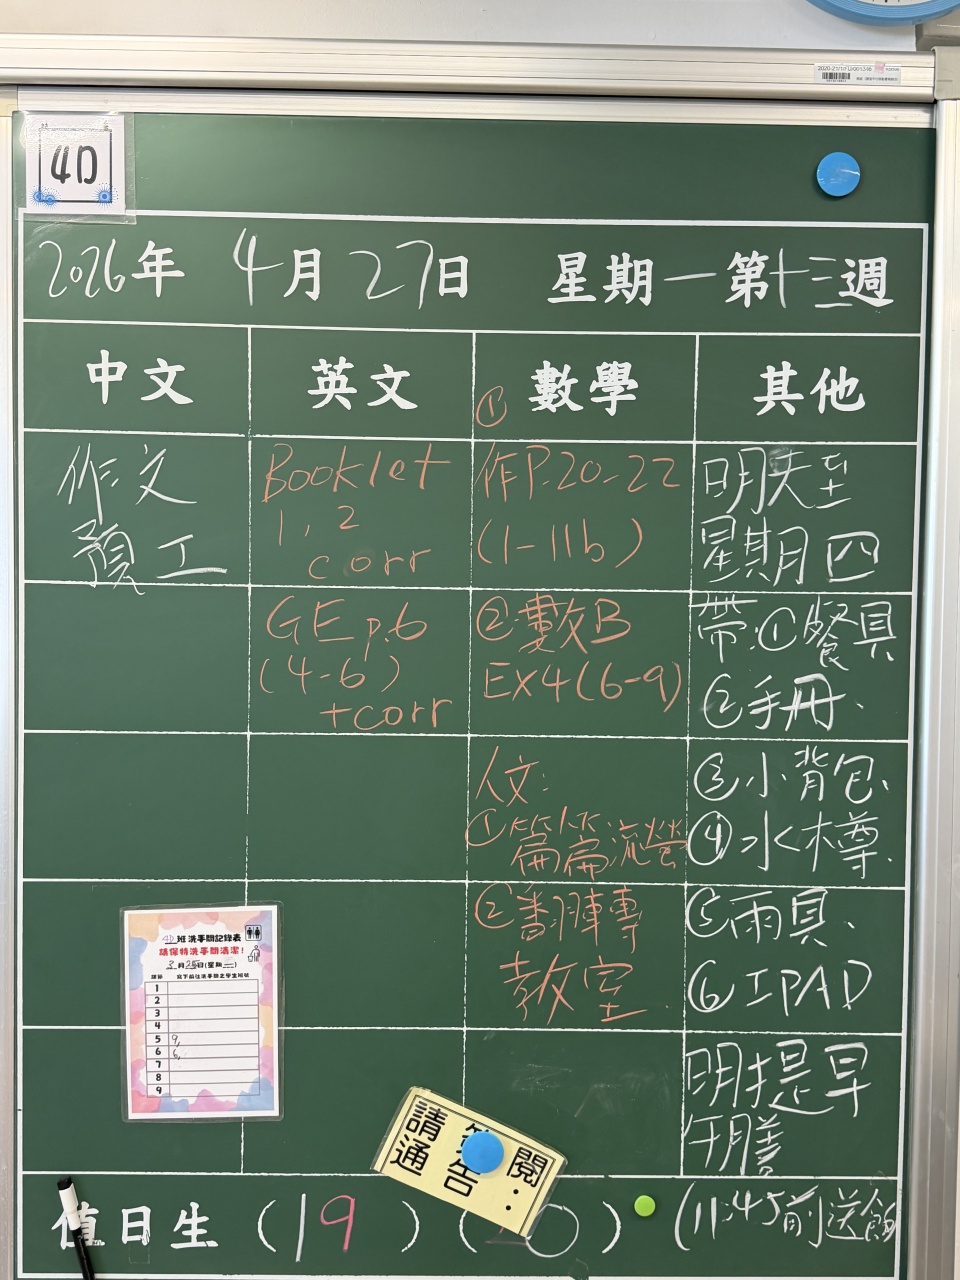 4D
2026年 4月27日 星期一第十三週
中文 英文 數學 其他
作文
預工
Booklet
1, 2
corr
GE p.6
(4-6)
+corr
① 作P.20-22
(1-11b)
② 數B
EX4(6-9)
人文:
① 篇篇流螢
② 翻轉
教室
明天至
星期四
帶:①餐具
②手冊、
③小背包、
④水樽、
⑤雨具、
⑥IPAD
明提早
午膳
(11:45前送飯
4D班洗手間記錄表
請保持洗手間清潔!
1
2
3
4
5 9,
6 6,
7
8
9
請 閱:
通告
值日生 (19) ( 0)